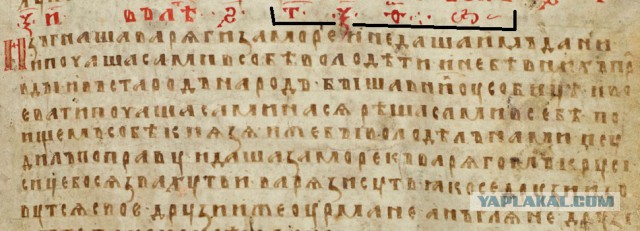 въ лѣ ҂ѕ т ѯ
Изъгнаша варѧги за море и не даша имъ дани
и почаша сами в собѣ володѣти и не бѣ в нихъ пр
вды и въста родъ на родъ быша в ни оусобицѣ и во
евати почаша сами на сѧ рѣша сами в себѣ по
ищемъ собѣ кнѧзѧ иже бы володѣлъ нами и су
дилъ по праву идаша за море къ варѧгомъ к русı
сице бо сѧ звахуть и варѧзи суть ꙗко се друзии зо
вутсѧ свое друзии же оурмане анъглѧне друзı
YAPLAKAL.COM